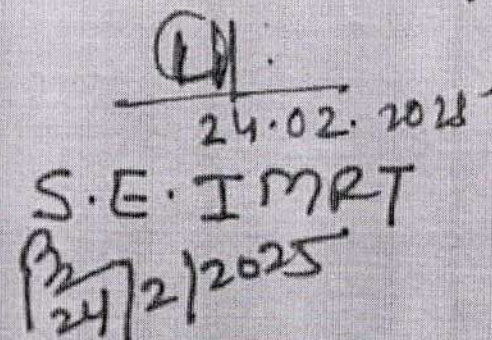 24.02.2025
S.E. IMRT
24/2/2025